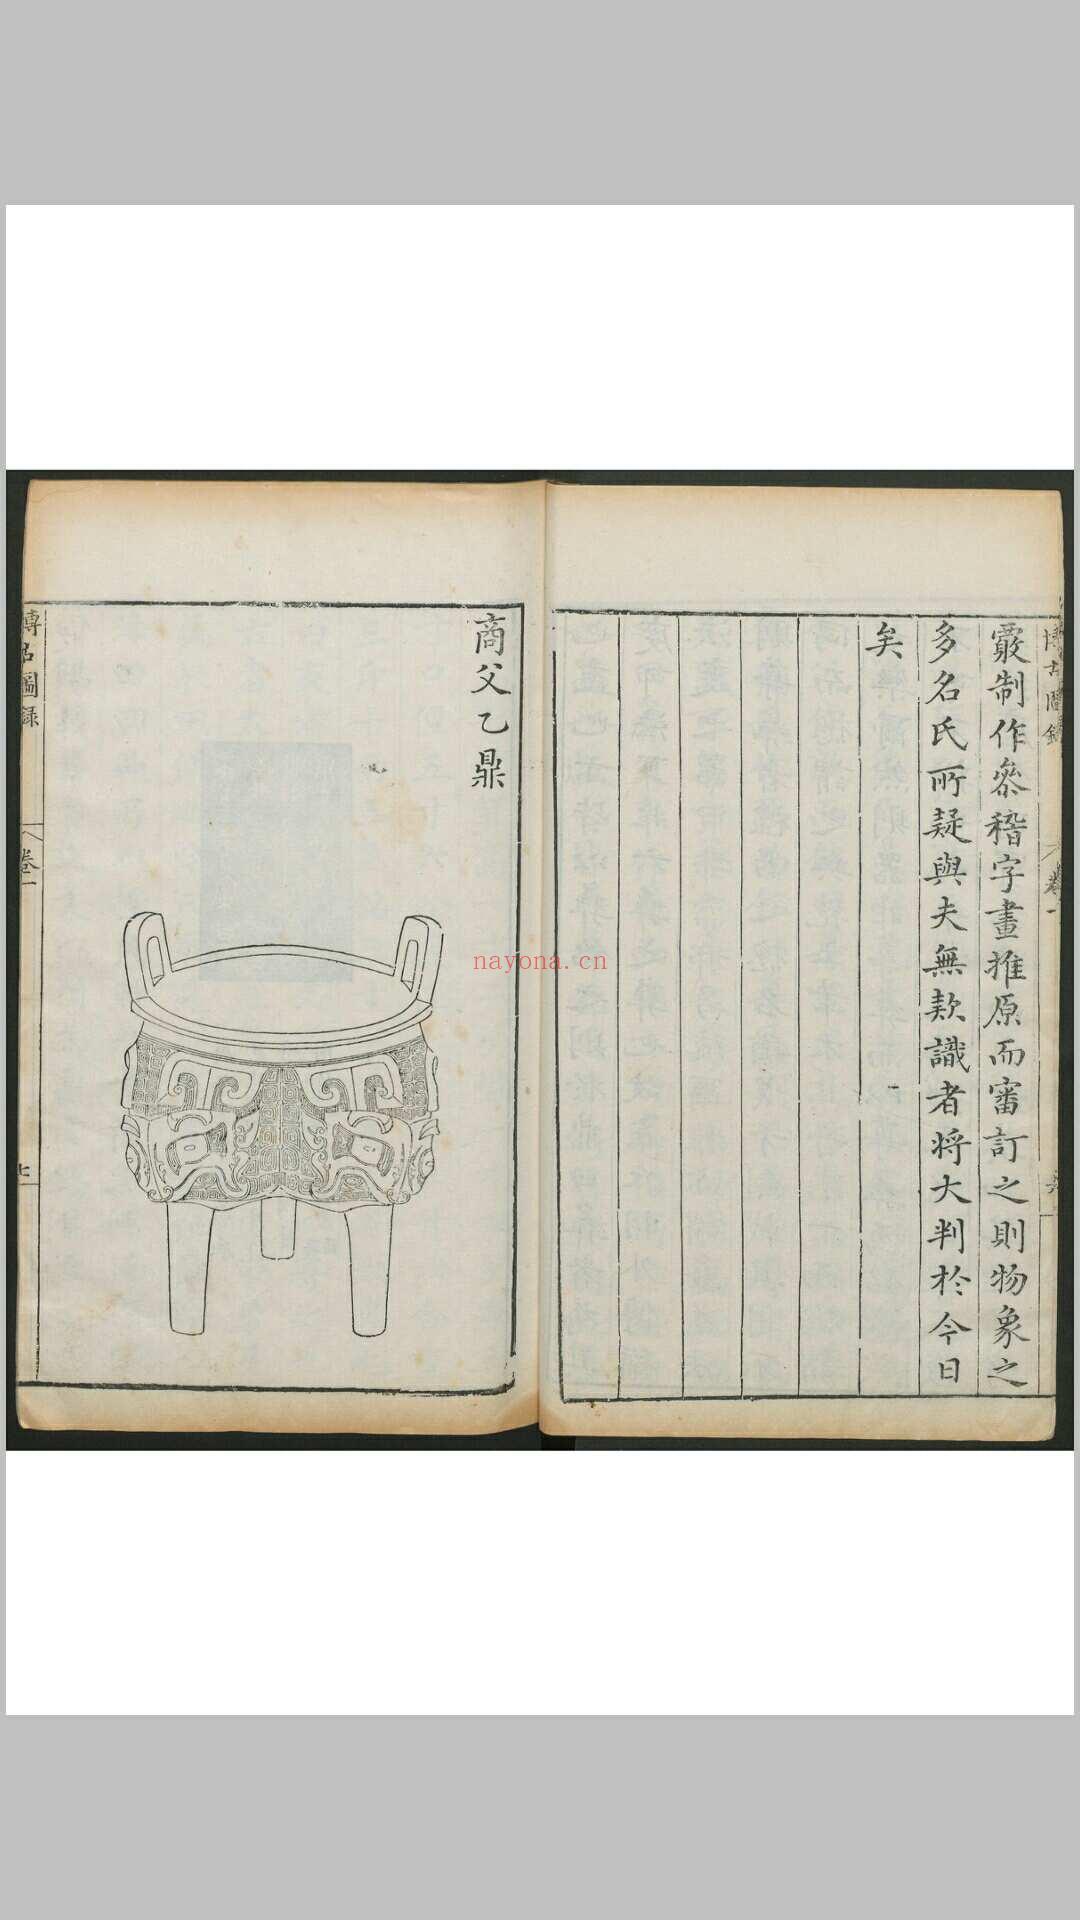 博古圖錄
卷一
六
覈制作叅稽字畫推原而審訂之則物象之
多名氏所疑與夫無欵識者將大判於今日
矣
商父乙鼎
博古圖錄
卷一
七
nayona.cn